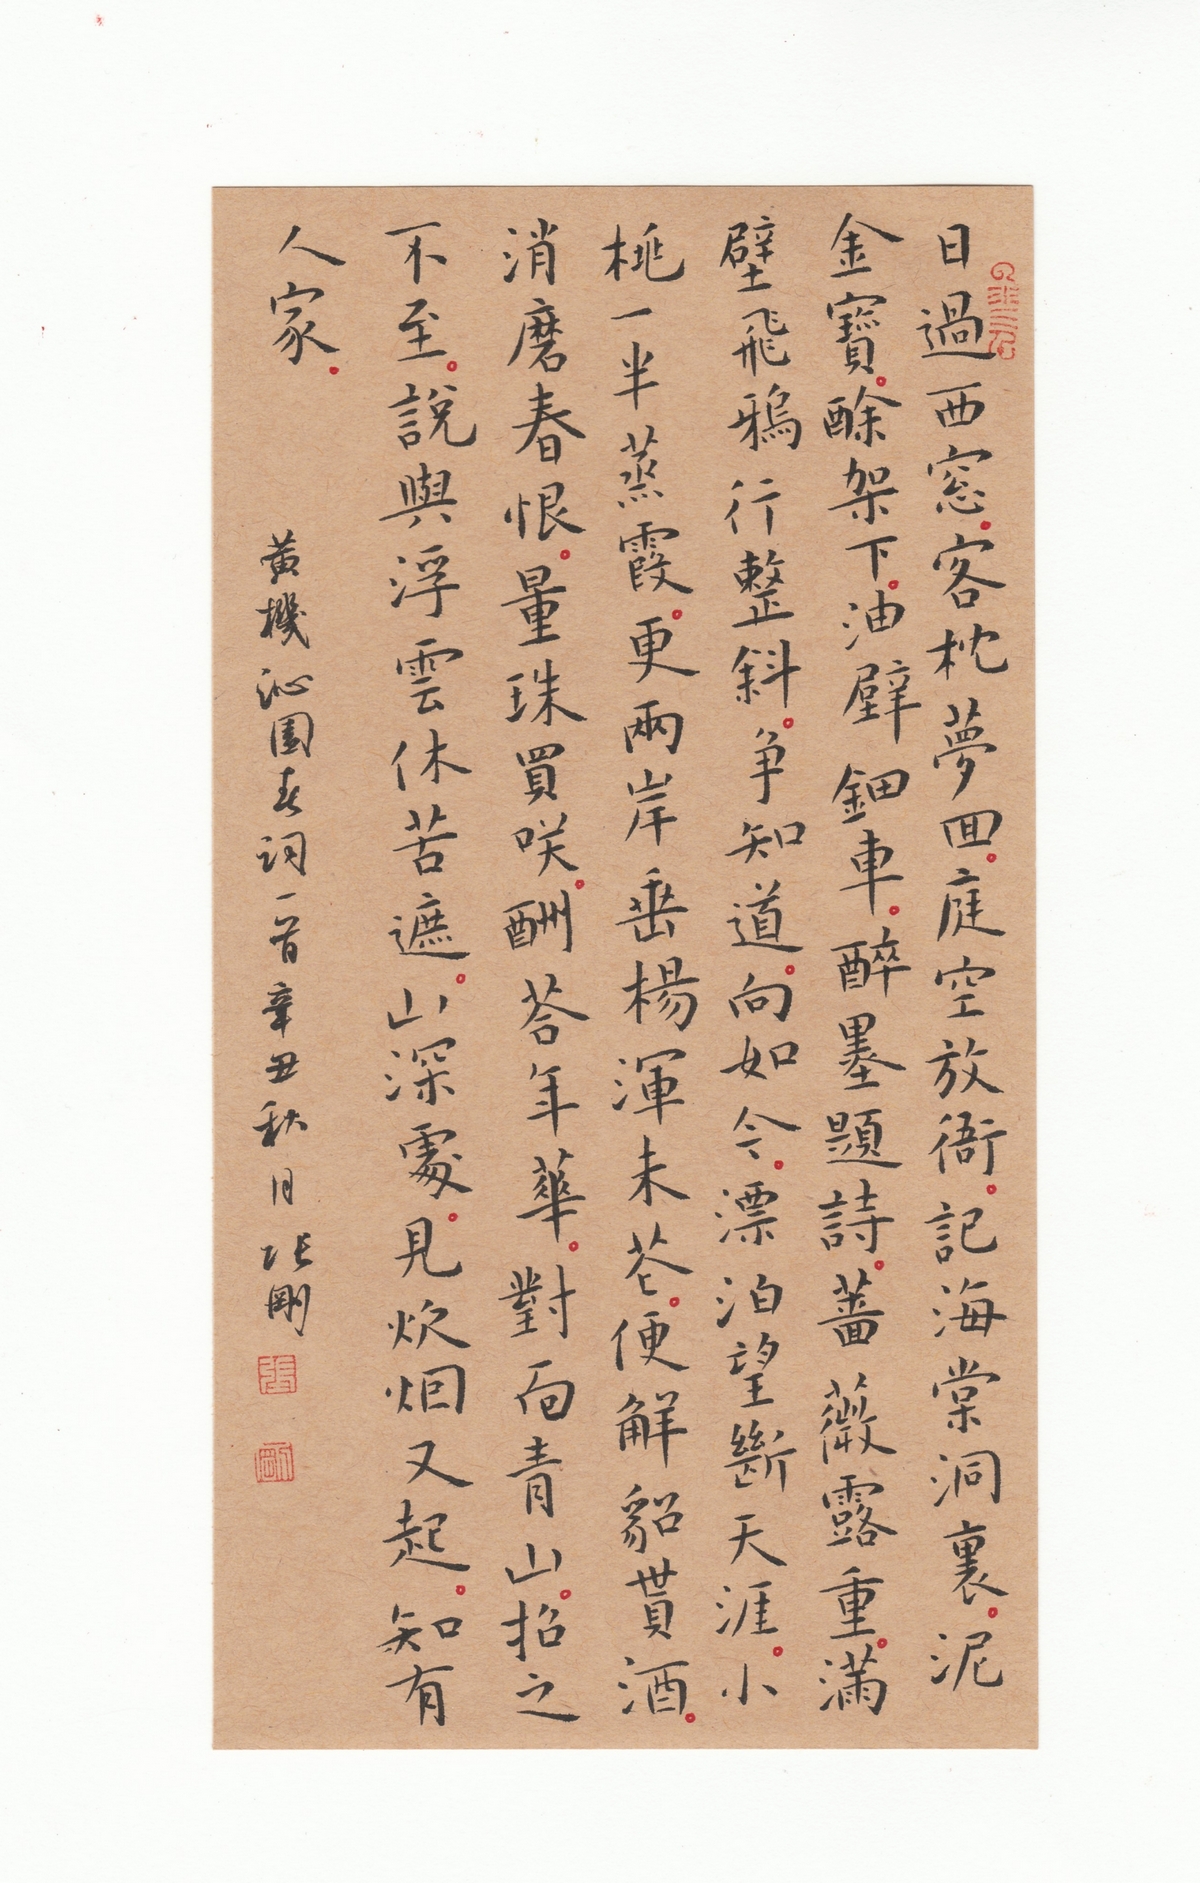 日過西窓客枕夢回庭空放衙記海棠洞裏泥
金寶酴架下油壁鈿車醉墨題詩薔薇露重滿
壁飛鴉行整斜争知道向如今漂泊望斷天涯小
桃一半蒸霞更兩岸垂楊渾未花便解貂貰酒
消磨春恨量珠買咲酬荅年華對面青山招之
不至說與浮雲休苦遮山深處見炊烟又起知有
人家
黃機沁園春詞一首辛丑秋月張剛